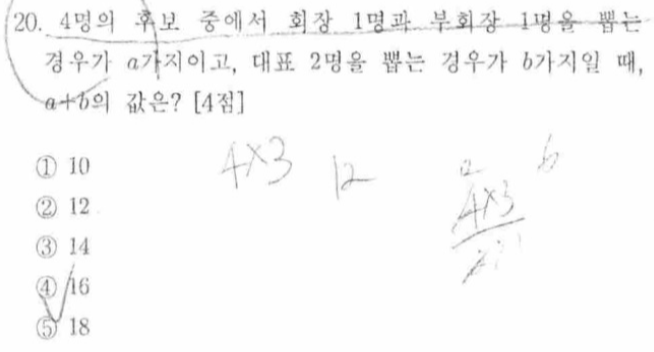 20. 4명의 후보 중에서 회장 1명과 부회장 1명을 뽑는
경우가 a가지이고, 대표 2명을 뽑는 경우가 b가지일 때,
a+b의 값은? [4점]
① 10
② 12
③ 14
④ 16
⑤ 18
4×3
12
a
b
4×3